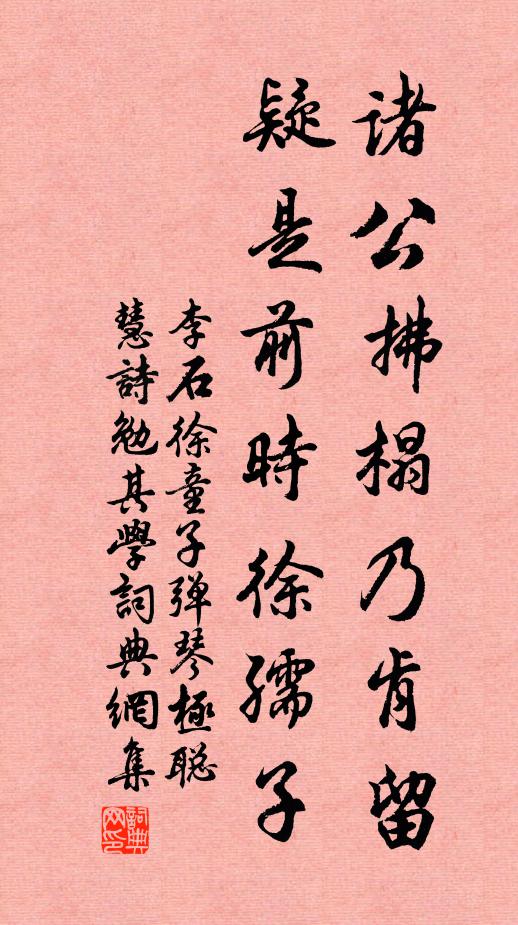 諸公拂榻乃肯留
疑是前時徐孺子
李石徐童子弹琴極聪
慧詩勉其學詞典網集
詞典网印